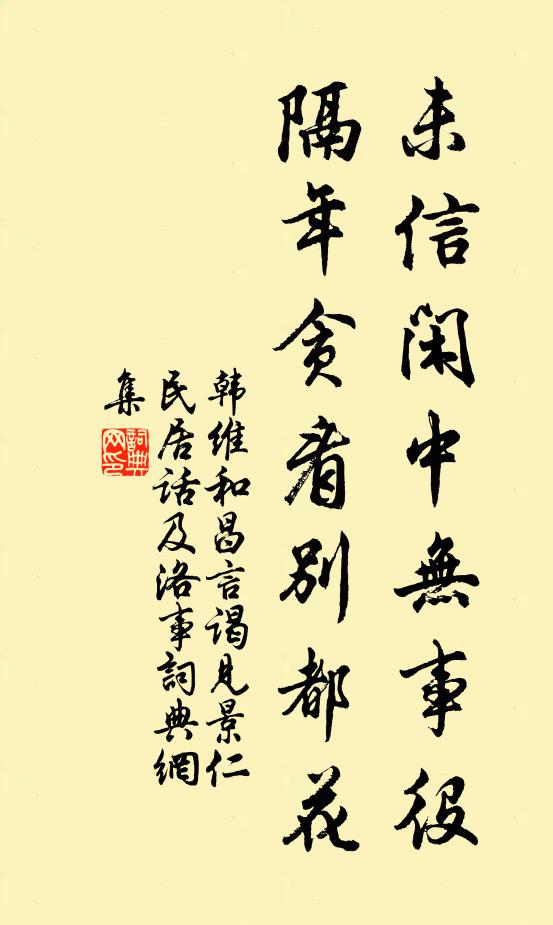 未信閑中無事役
隔年貪看別都花
韩维和昌言谒见景仁
民居话及洛事詞典網
集
詞典網印